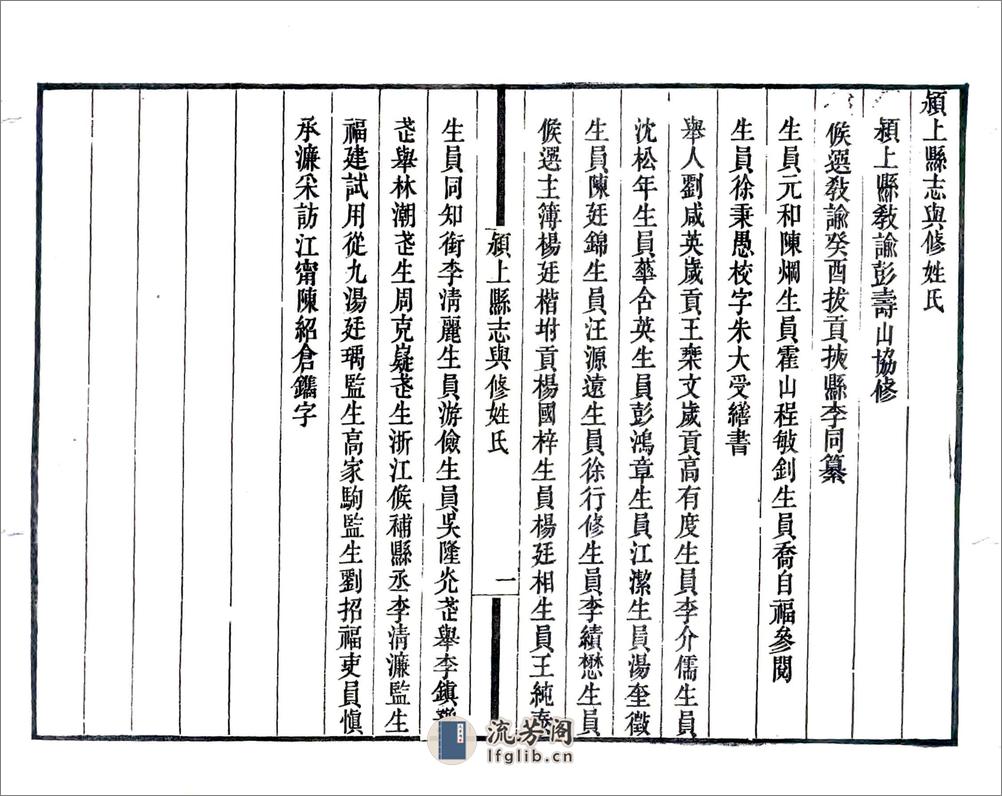 潁上縣志與修姓氏
潁上縣敎諭彭壽山協修
候選敎諭癸酉拔貢掖縣李同纂
生員元和陳爛生員霍山程敏釗生員喬自福參閱
生員徐秉愚校字朱大受繕書
舉人劉咸英歲貢王棻文歲貢高有度生員李介儒生員
沈松年生員華含英生員彭鴻章生員江潔生員湯奎徵
生員陳廷錦生員汪源遠生員徐行修生員李績懋生員
候選主簿楊廷楷坿貢楊國梓生員楊廷相生員王純
潁上縣志與修姓氏
一
生員同知銜李清麗生員游儉生員吳隆光武舉李鎮
武舉林潮武生周克嶷武生浙江候補縣丞李清濂監生
福建試用從九湯廷瑀監生高家駒監生劉招福吏員愼
承濂采訪江甯陳紹倉鐫字
流芳阁
lfglib.cn